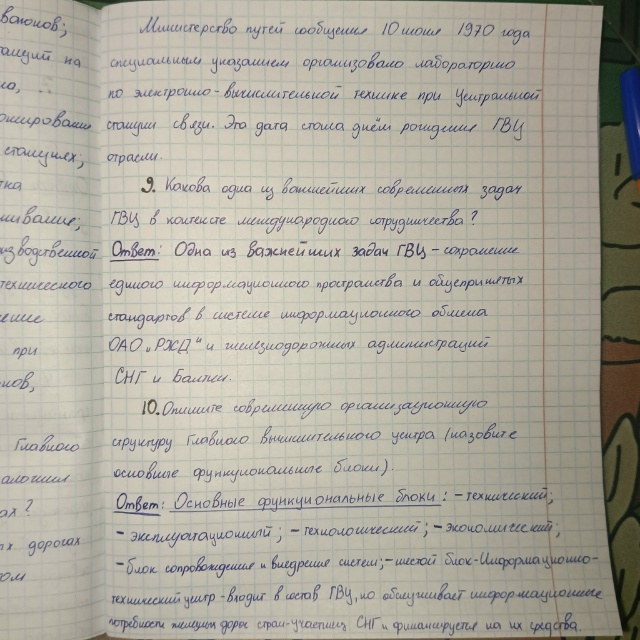 вагонов;
станций на
Министерство путей сообщения 10 июня 1970 года
специальным указанием организовало лабораторию
по электронно-вычислительной технике при Центральной
станции связи. Эта дата стала днём рождения ГВЦ
отрасли.
9. Какова одна из важнейших современных задач
ГВЦ в контексте международного сотрудничества?
Ответ: Одна из важнейших задач ГВЦ – сохранение
единого информационного пространства и общепринятых
стандартов в системе информационного обмена
ОАО „РЖД" и железнодорожных администраций
СНГ и Балтии.
10. Опишите современную организационную
структуру Главного вычислительного центра (назовите
основные функциональные блоки).
Ответ: Основные функциональные блоки: – технический;
– эксплуатационный; – технологический; – экономический;
– блок сопровождения и внедрения систем; – шестой блок-Информационно-
технический центр – входит в состав ГВЦ, но обслуживает информационные
потребности железных дорог стран-участниц СНГ и финансируется на их средства.
станциях,
производственной
технического
при
Главного
ах?
их дорогах